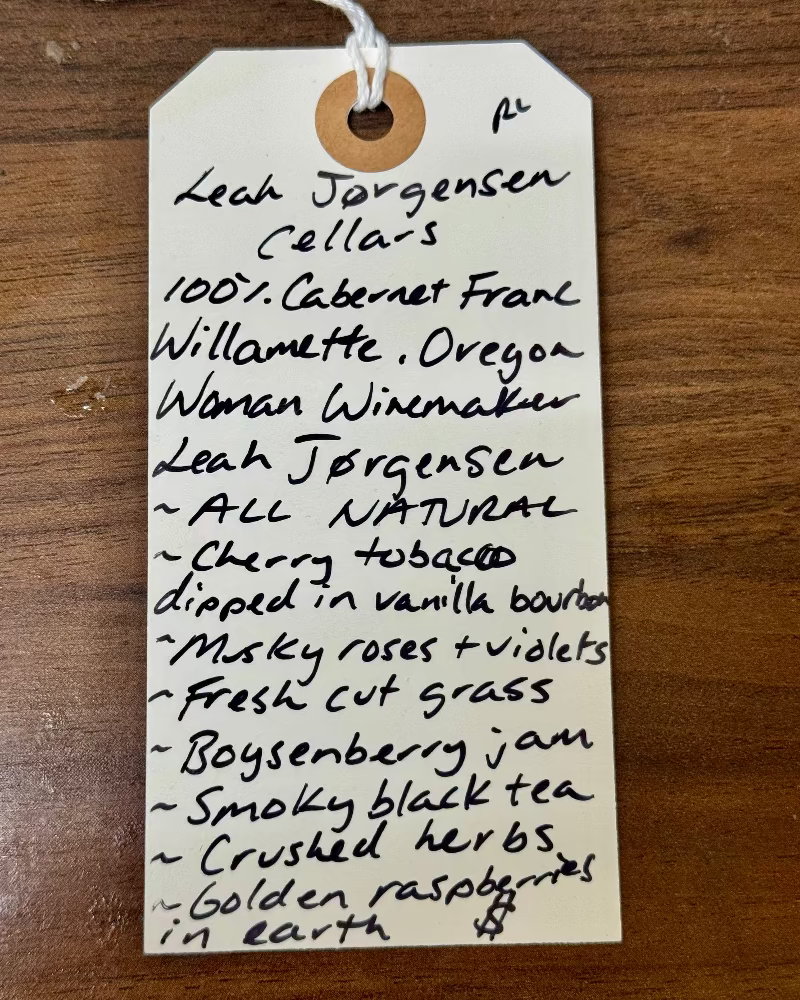 RL
Leah Jørgensen
Cellars
100% Cabernet Franc
Willamette, Oregon
Woman Winemaker
Leah Jørgensen
~ ALL NATURAL
~ Cherry tobacco
dipped in vanilla bourbon
~ Musky roses + violets
~ Fresh cut grass
~ Boysenberry jam
~ Smoky black tea
~ Crushed herbs
~ Golden raspberries
in earth $